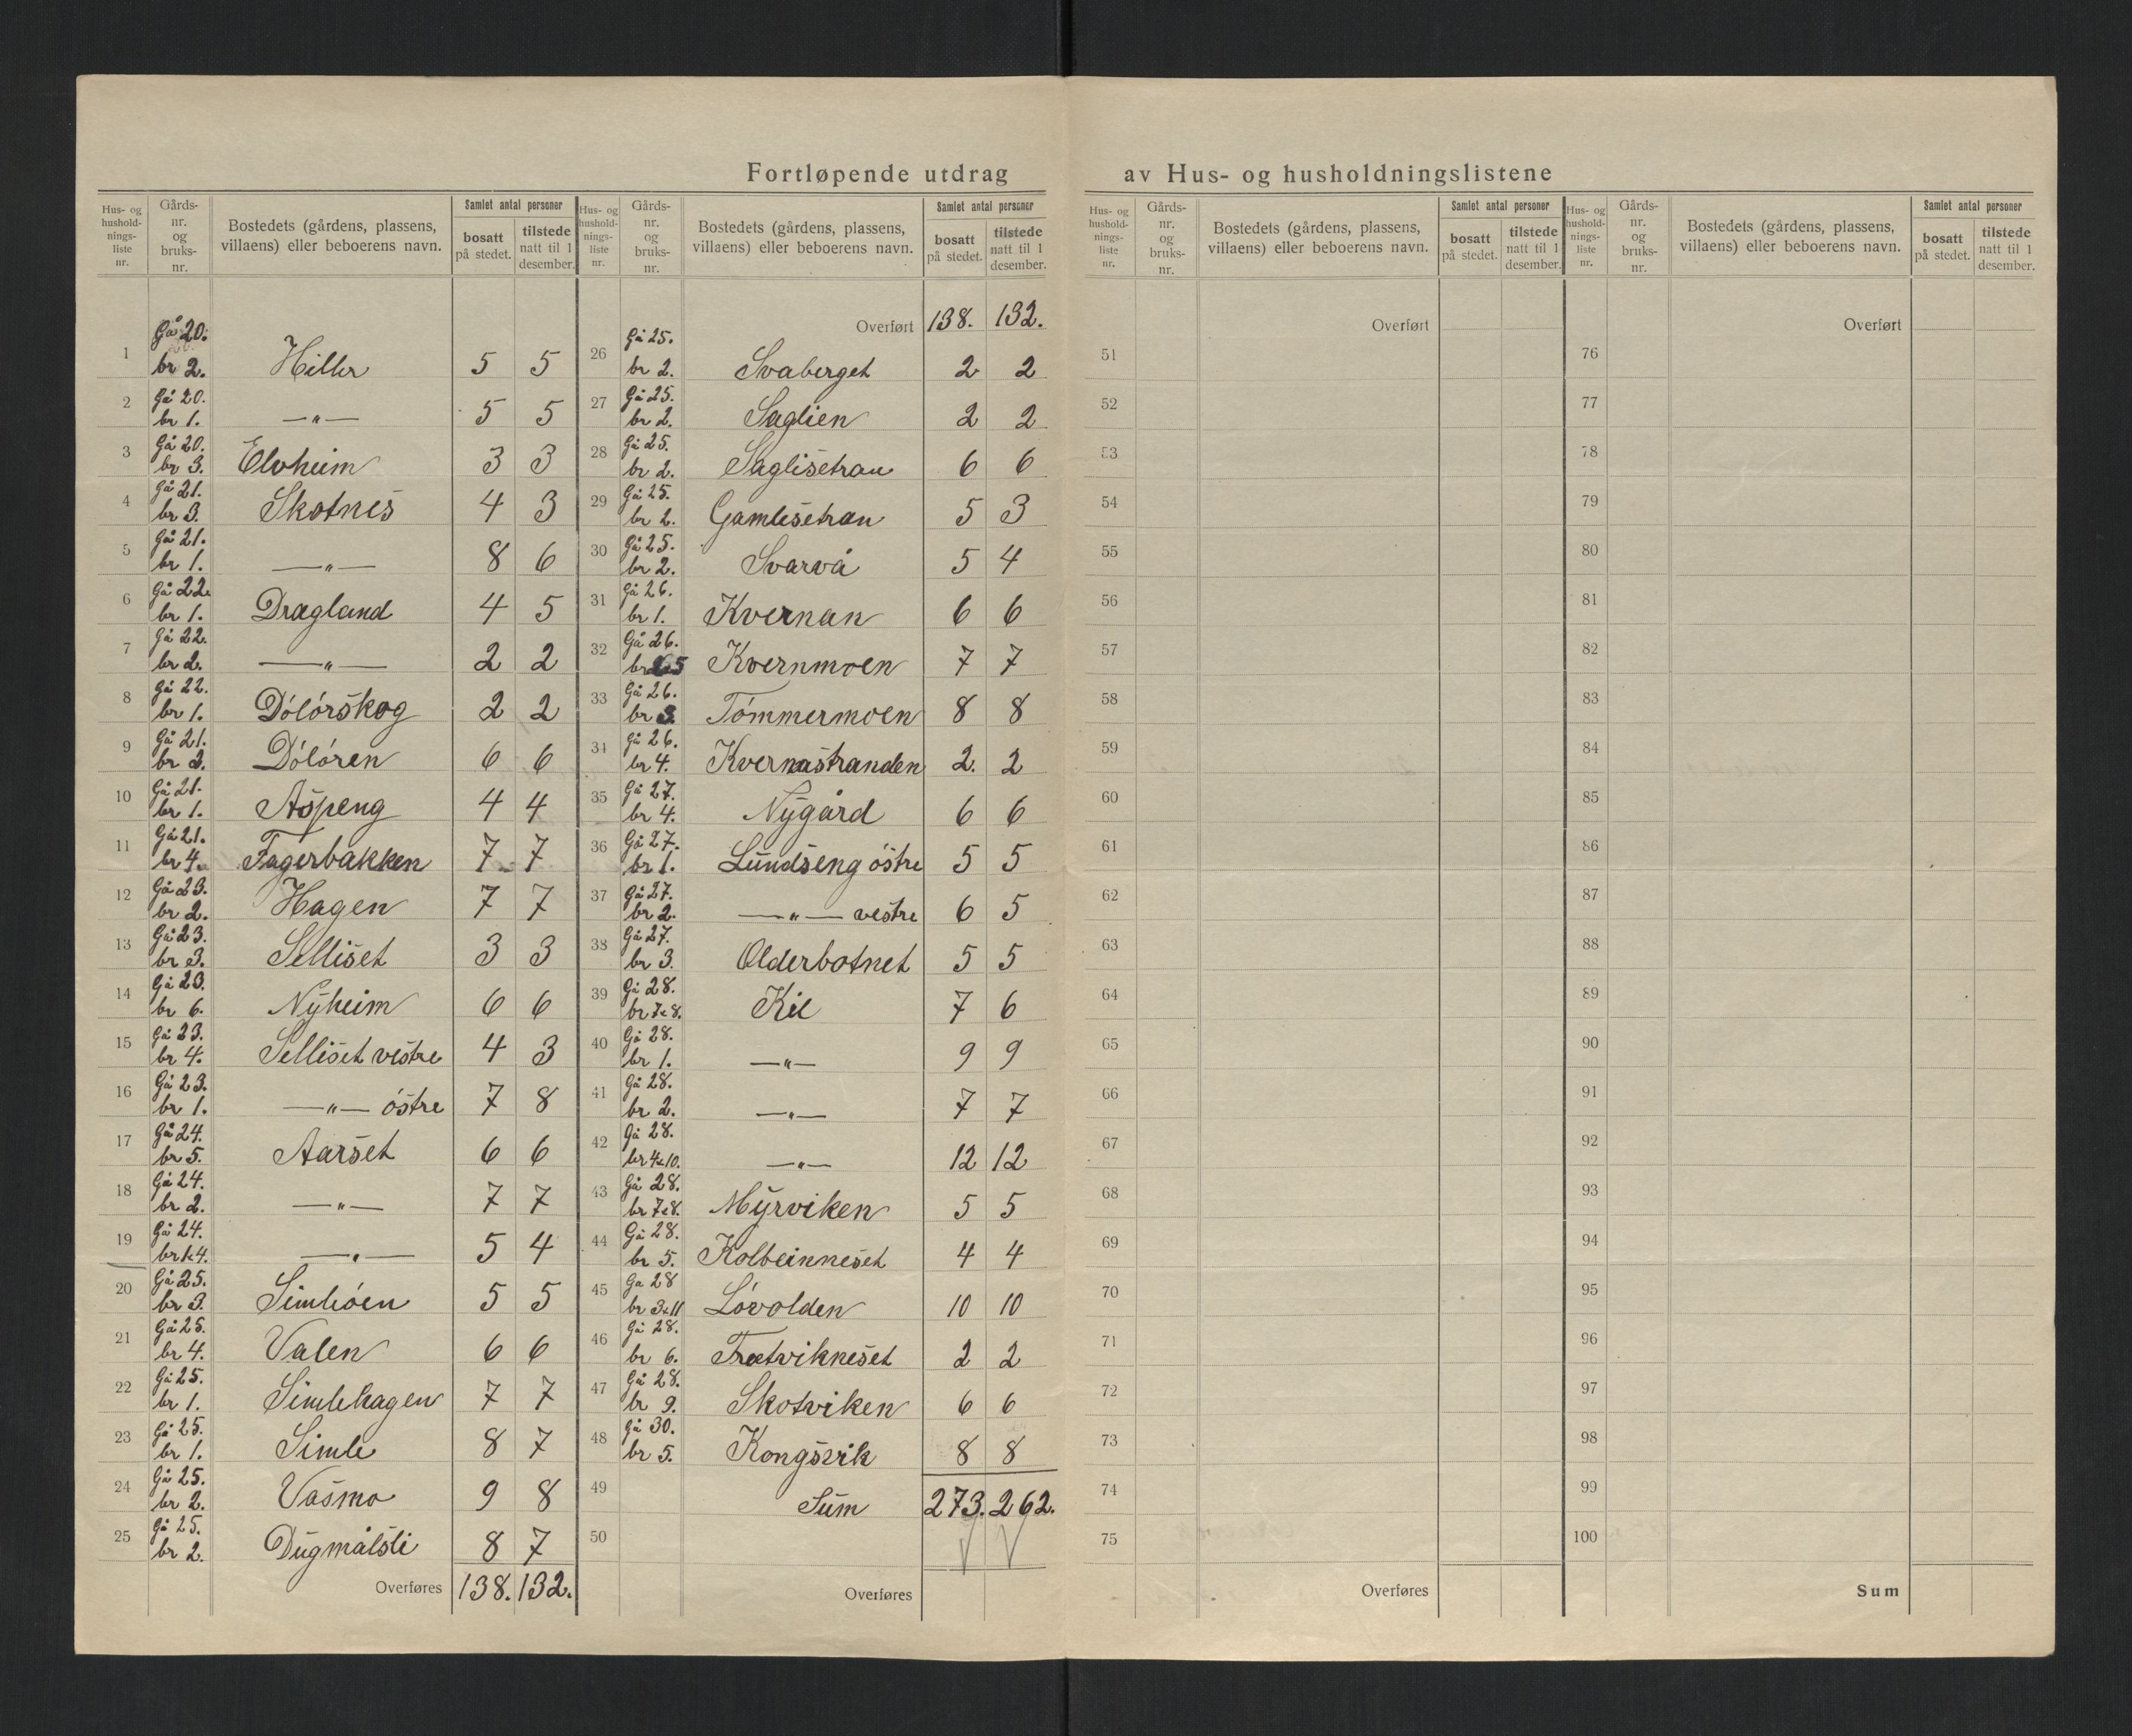 Fortløpende utdrag av Hus- og husholdningslistene
Hus- og hushold-nings-liste nr. Gårds-nr. og bruks-nr. Bostedets (gårdens, plassens, villaens) eller beboerens navn. Samlet antal personer bosatt på stedet. tilstede natt til 1 desember.
1 Gå 20. br 2. Hiller 5 5
2 Gå 20. br 1. —"— 5 5
3 Gå 20. br 3. Elvheim 3 3
4 Gå 21. br 3. Skotnes 4 3
5 Gå 21. br 1. —"— 8 6
6 Gå 22. br 1. Dragland 4 5
7 Gå 22. br 2. —"— 2 2
8 Gå 22. br 1. Dólórskog 2 2
9 Gå 21. br 2. Dólóren 6 6
10 Gå 21. br 1. Aspeng 4 4
11 Gå 21. br 4. Fagerbakken 7 7
12 Gå 23. br 2. Hagen 7 7
13 Gå 23. br 3. Selliset 3 3
14 Gå 23. br 6. Nyheim 6 6
15 Gå 23. br 4. Selliset vestre 4 3
16 Gå 23. br 1. —"— óstre 7 8
17 Gå 24. br 5. Aarset 6 6
18 Gå 24. br 2. —"— 7 7
19 Gå 24. br 1&4. —"— 5 4
20 Gå 25. br 3. Simleóen 5 5
21 Gå 25. br 4. Valen 6 6
22 Gå 25. br 1. Simlehagen 7 7
23 Gå 25. br 1. Simle 8 7
24 Gå 25. br 2. Vasmo 9 8
25 Gå 25. br 2. Dugmålsli 8 7
Overføres 138. 132.
Hus- og hushold-nings-liste nr. Gårds-nr. og bruks-nr. Bostedets (gårdens, plassens, villaens) eller beboerens navn. Samlet antal personer bosatt på stedet. tilstede natt til 1 desember.
Overført 138. 132.
26 Gå 25. br 2. Svaberget 2 2
27 Gå 25. br 2. Saglien 2 2
28 Gå 25. br 2. Saglisetran 6 6
29 Gå 25. br 2. Gamlesetran 5 3
30 Gå 25. br 2. Svarvå 5 4
31 Gå 26. br 1. Kvernan 6 6
32 Gå 26. br 5 Kvernmoen 7 7
33 Gå 26. br 3. Tómmermoen 8 8
34 Gå 26. br 4. Kvernastranden 2. 2
35 Gå 27. br 4. Nygård 6 6
36 Gå 27. br 1. Lundseng óstre 5 5
37 Gå 27. br 2. —"— vestre 6 5
38 Gå 27. br 3. Olderbotnet 5 5
39 Gå 28. br 7&8. Kil 7 6
40 Gå 28. br 1. —"— 9 9
41 Gå 28. br 2. —"— 7 7
42 Gå 28. br 4&10. —"— 12 12
43 Gå 28. br 7&8. Myrviken 5 5
44 Gå 28. br 5. Kolbeinneset 4 4
45 Ga 28 br 3&11 Lóvolden 10 10
46 Gå 28. br 6. Tretvikneset 2 2
47 Gå 28. br 9. Skotviken 6 6
48 gå 30. br 5. Kongsvik 8 8
49 Sum 273. 262.
50
Overføres
Hus- og hushold-nings-liste nr. Gårds-nr. og bruks-nr. Bostedets (gårdens, plassens, villaens) eller beboerens navn. Samlet antal personer bosatt på stedet. tilstede natt til 1 desember.
Overført
51
52
53
54
55
56
57
58
59
60
61
62
63
64
65
66
67
68
69
70
71
72
73
74
75
Overføres
Hus- og hushold-nings-liste nr. Gårds-nr. og bruks-nr. Bostedets (gårdens, plassens, villaens) eller beboerens navn. Samlet antal personer bosatt på stedet. tilstede natt til 1 desember.
Overført
76
77
78
79
80
81
82
83
84
85
86
87
88
89
90
91
92
93
94
95
96
97
98
99
100
Sum